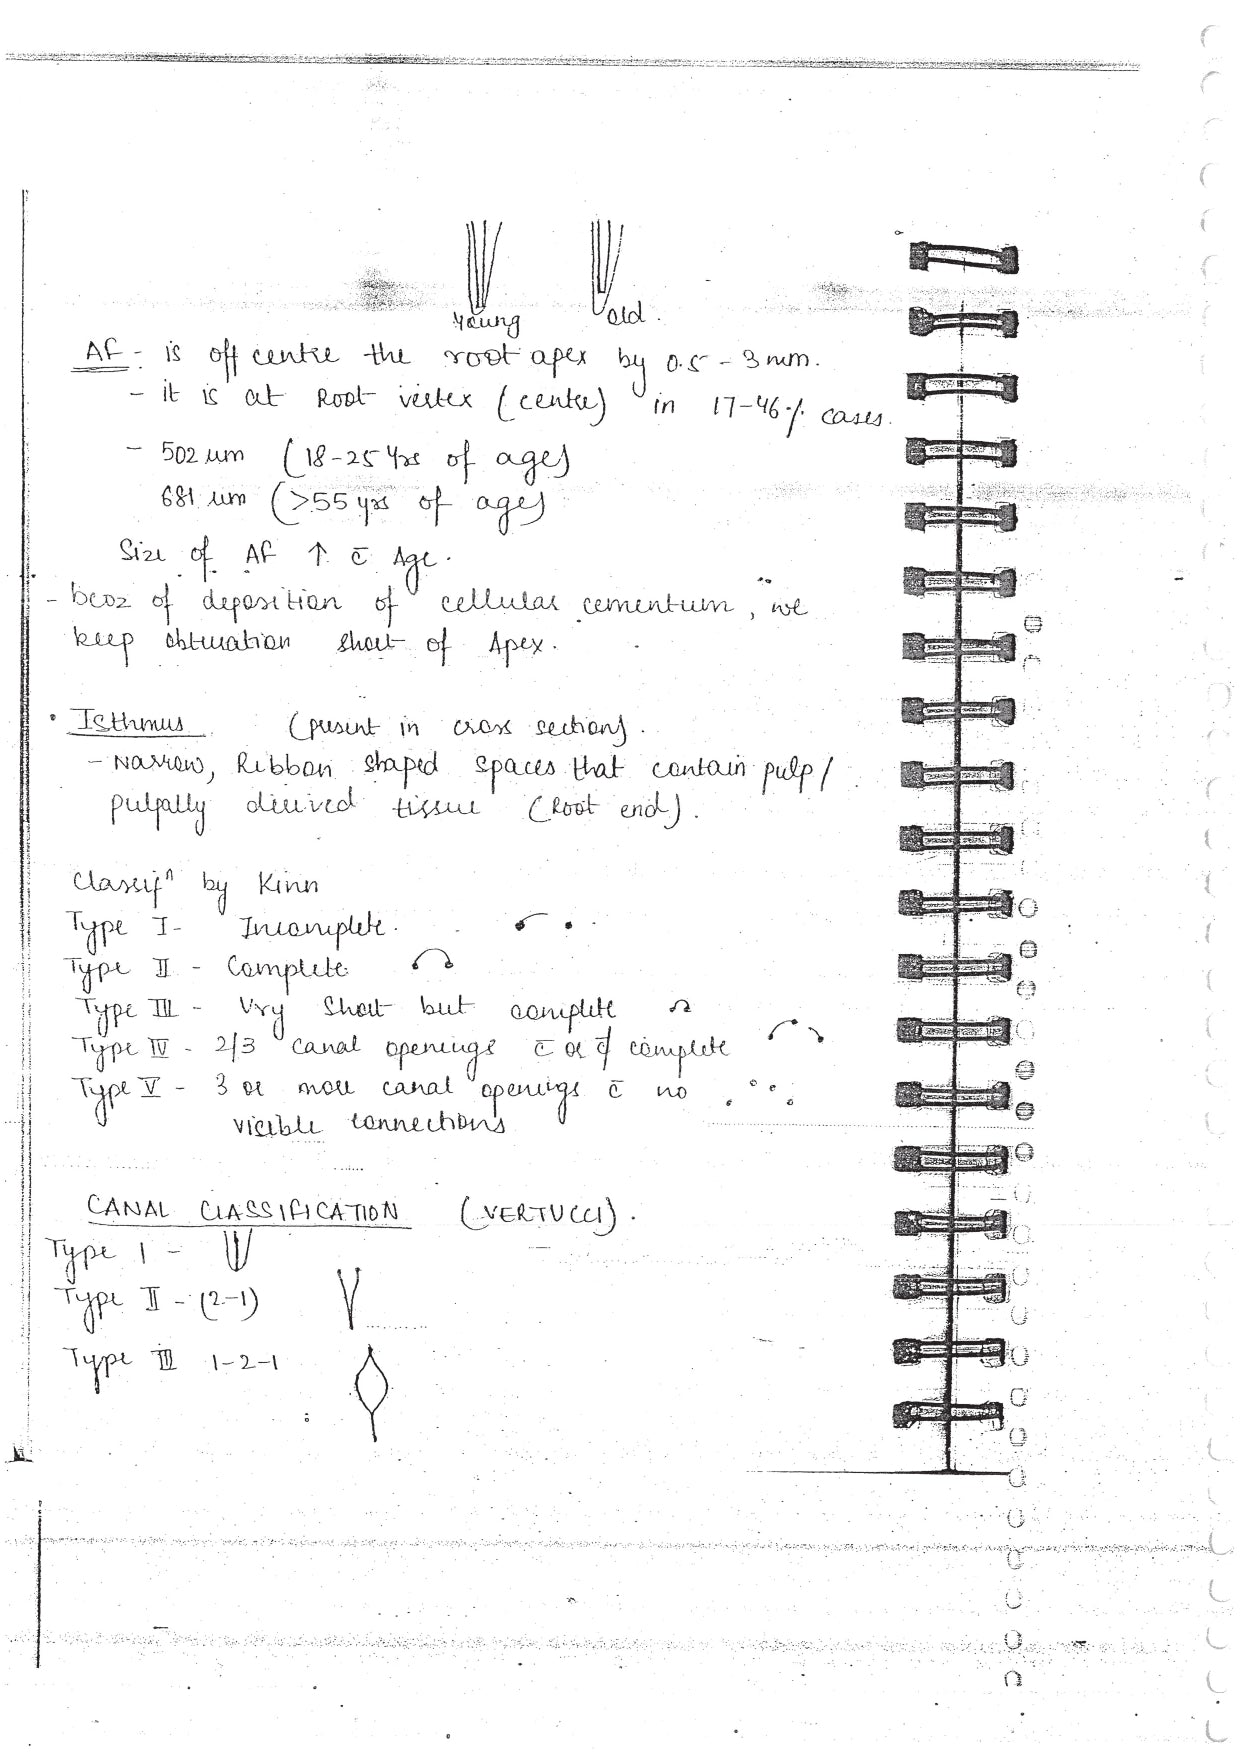 Young old.
AF - is off centre the root apex by 0.5 - 3mm.
- it is at Root vertex (centre) in 17-46% cases.
- 502 um (18-25 Yrs of age)
681 um (>55 yrs of age)
Size of AF ↑ c̄ Age.
- becoz of deposition of cellular cementum, we
keep obturation short of Apex.
• Isthmus (present in cross section).
- Narrow, Ribbon shaped spaces that contain pulp/
pulpally derived tissue (Root end).
Classifⁿ by Kinn
Type I - Incomplete.
Type II - Complete
Type III - Vry Short but complete
Type IV - 2/3 canal openings c̄ or complete
Type V - 3 or more canal openings c̄ no
visible connections
CANAL CLASSIFICATION (VERTUCCI).
Type I -
Type II - (2-1)
Type III 1-2-1